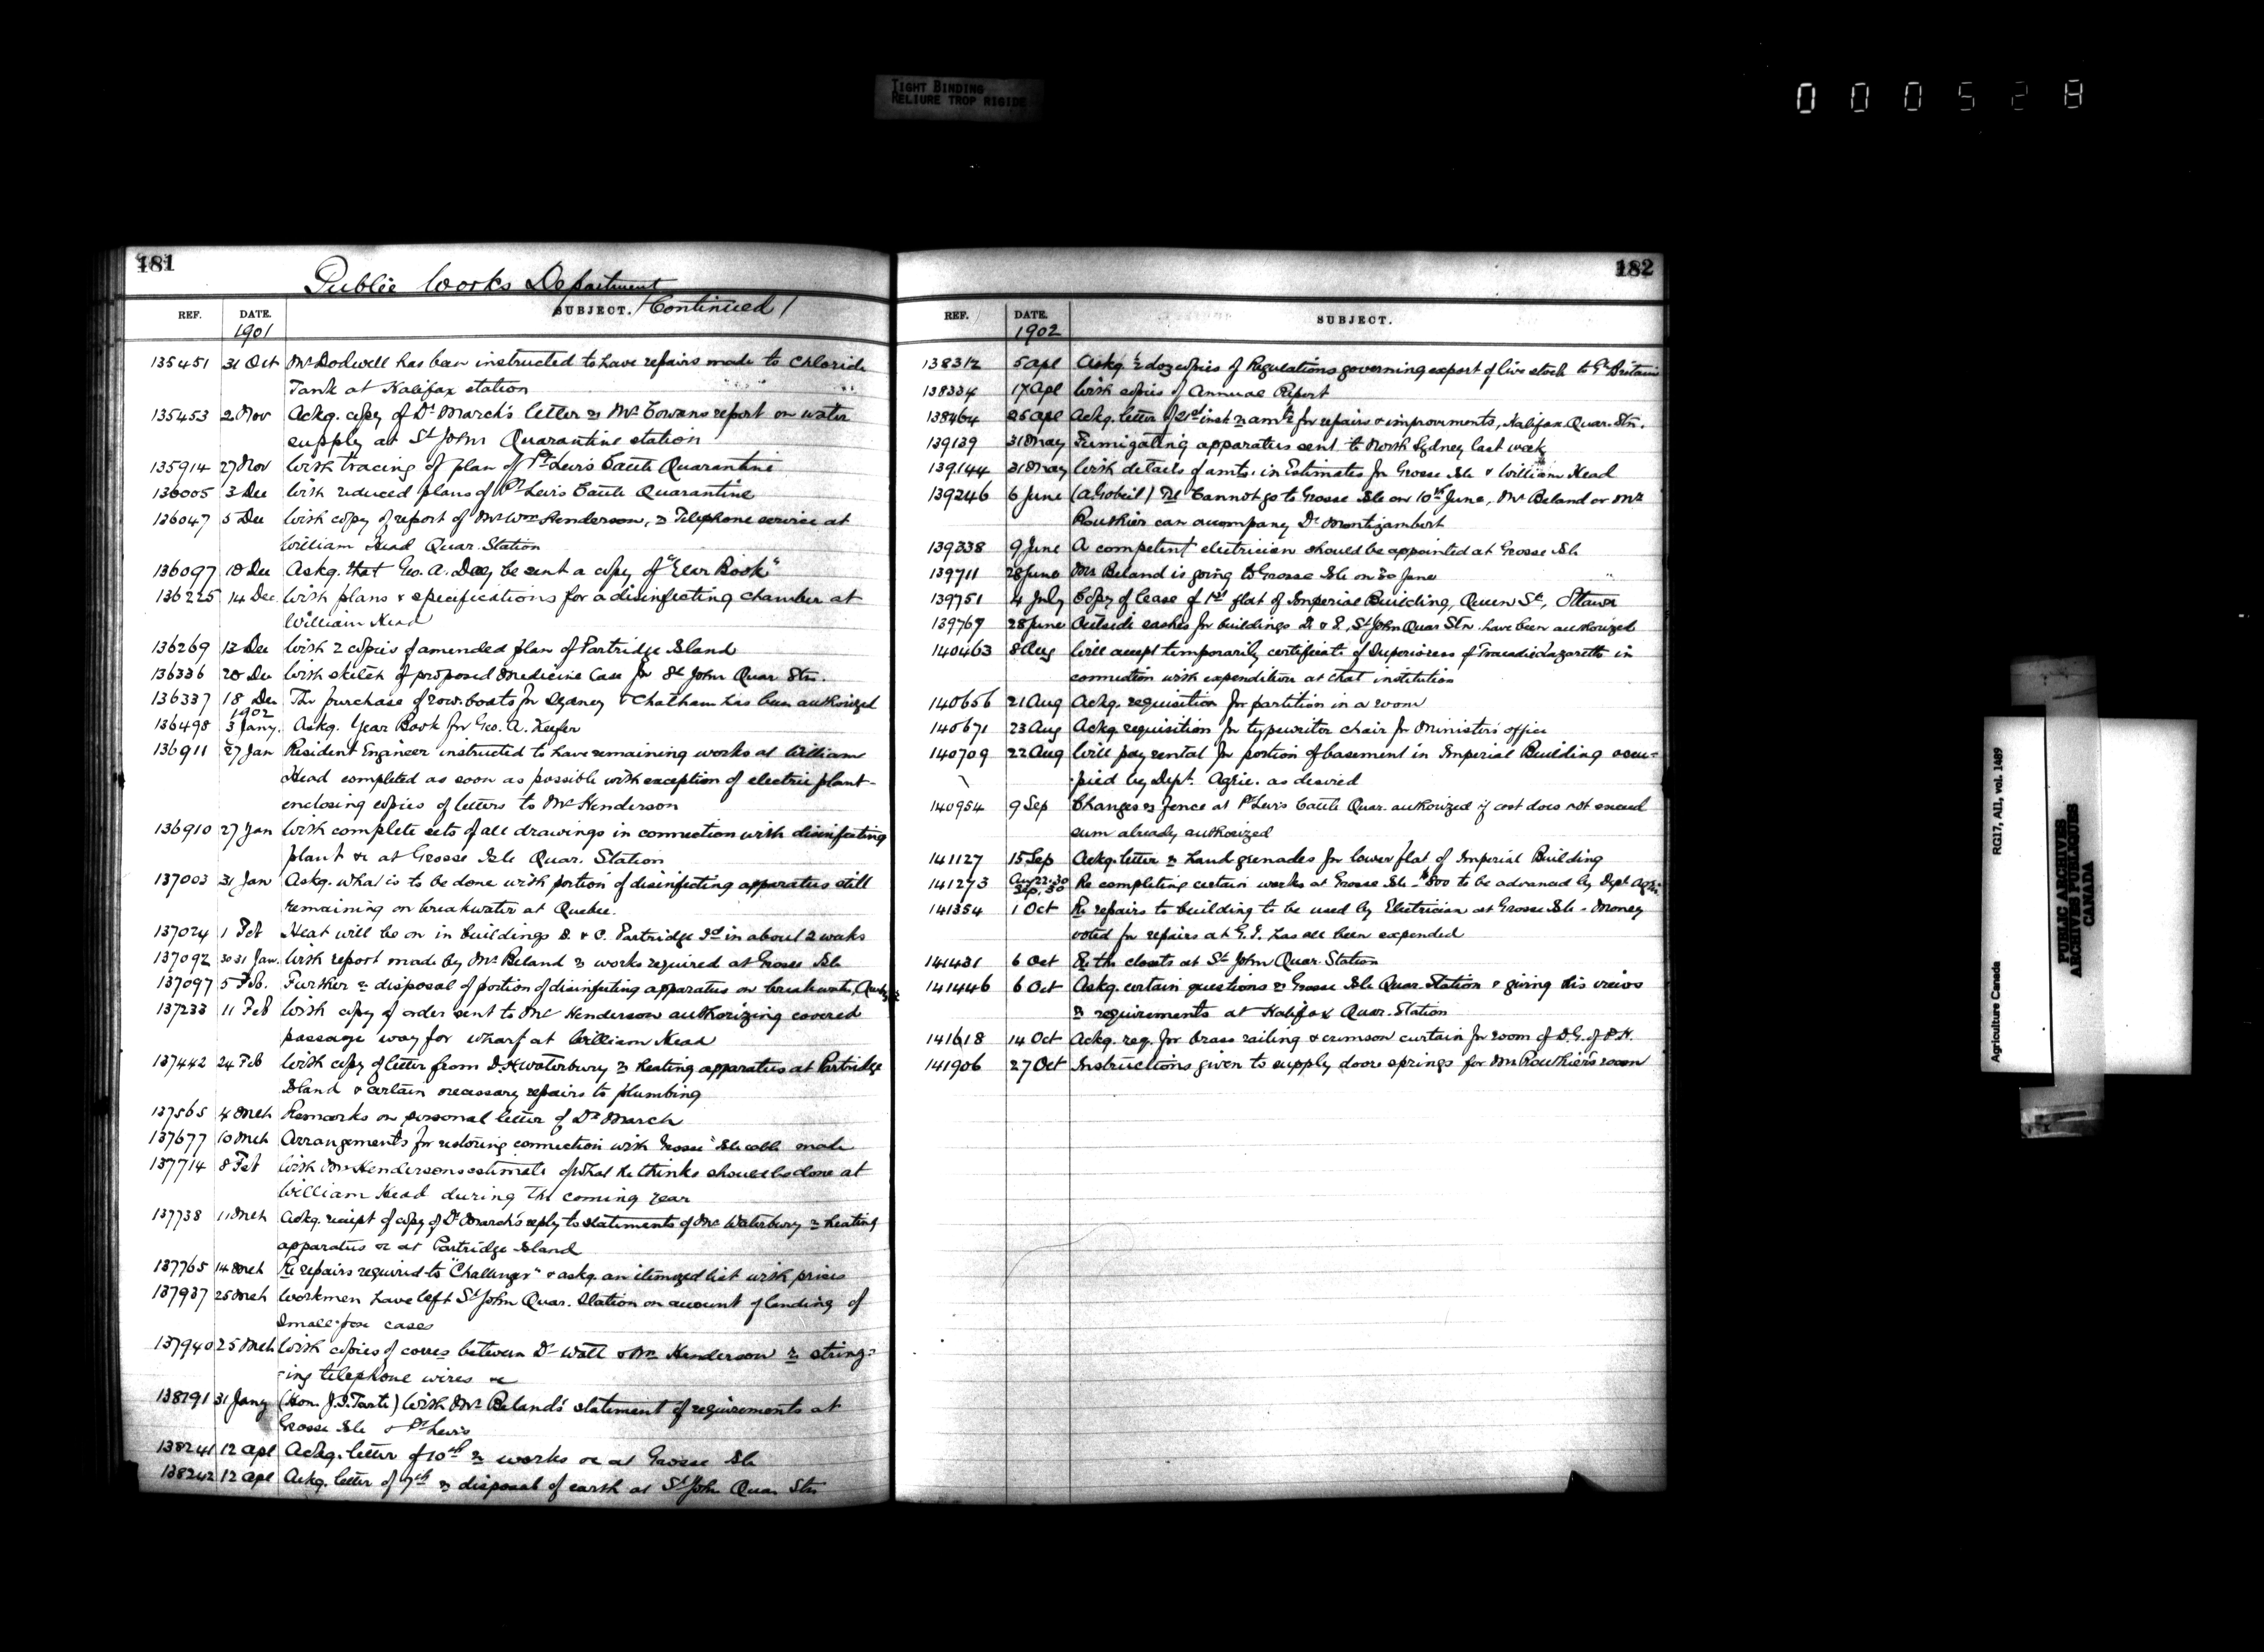 TIGHT BINDING
RELIURE TROP RIGIDE
000528
181
Public Works Department
SUBJECT. (Continued)
REF. DATE.
1901
135451 31 Oct Mr Dodwell has been instructed to have repairs made to Chloride
Tank at Halifax station
135453 2 Nov Ackg. copy of Dr March's letter re Mr Cowans report on water
supply at St John Quarantine station
135914 27 Nov With tracing of plan of Pt Levis Cattle Quarantine
136005 3 Dec With reduced plans of Pt Levis Cattle Quarantine
136047 5 Dec With copy of report of Mr Wm Henderson, re Telephone service at
William Head Quar. Station
136097 10 Dec Askg. that Geo. A. Day be sent a copy of "Year Book"
136225 14 Dec. With plans & specifications for a disinfecting chamber at
William Head
136269 13 Dec With 2 copies of amended plan of Partridge Island
136336 20 Dec With sketch of proposed Medicine Case for St John Quar. Stn.
136337 18 Dec The purchase of row-boats for Sydney & Chatham has been authorized
1902
136498 3 Jany. Askg. Year Book for Geo. A. Keefer
136911 27 Jan Resident Engineer instructed to have remaining works at William
Head completed as soon as possible with exception of electric plant -
enclosing copies of letters to Mr Henderson
136910 27 Jan With complete sets of all drawings in connection with disinfecting
plant &c at Grosse Isle Quar. Station
137003 31 Jan Askg. what is to be done with portion of disinfecting apparatus still
remaining on breakwater at Quebec.
137024 1 Feb Heat will be on in buildings B. & C. Partridge Id in about 2 weeks
137092 30 31 Jan. With report made by Mr Beland re works required at Grosse Isle
137097 5 Feb. Further re disposal of portion of disinfecting apparatus on breakwater, Quebec
137233 11 Feb With copy of order sent to Mr Henderson authorizing covered
passage way for wharf at William Head
137442 24 Feb With copy of letter from D. H. Waterbury re heating apparatus at Partridge
Island & certain necessary repairs to plumbing
137565 4 Mch Remarks on personal letter of Dr March
137677 10 Mch Arrangements for restoring connection with Grosse Isle cable made
137714 8 Feb With Mr Hendersons estimate of what he thinks should be done at
William Head during the coming year
137738 11 Mch Ackg. receipt of copy of Dr March's reply to statements of Mr Waterbury re heating
apparatus &c at Partridge Island
137765 14 Mch Re repairs required to "Challenger" & askg. an itemized list with prices
137937 25 Mch Workmen have left St John Quar. Station on account of landing of
Small-pox cases
137940 25 Mch With copies of corres between Dr Watt & Mr Henderson re string-
-ing telephone wires &c
138191 31 Jany (Hon. J. I. Tarte) With Mr Beland's statement of requirements at
Grosse Isle & Pt Levis
138241 12 Apl Ackg. letter of 10th re works &c at Grosse Isle
138242 12 Apl Ackg. letter of 7th re disposal of earth at St John Quar Stn
182
REF. DATE. SUBJECT.
1902
138312 5 Apl Askg. ½ doz copies of Regulations governing export of live stock to Gt Britain
138334 17 Apl With copies of Annual Report
138464 25 Apl Ackg. letter of 21st inst re amts for repairs & improvements, Halifax Quar. Stn.
139139 31 May Fumigating apparatus sent to North Sydney last week
139144 31 May With details of amts. in Estimates for Grosse Isle & William Head
139246 6 June (A. Gobeil) Re Cannot go to Grosse Isle on 10th June, Mr Beland or Mr
Routhier can accompany Dr Montizambert
139338 9 June A competent electrician should be appointed at Grosse Isle
139711 28 June Mr Beland is going to Grosse Isle on 30 June
139751 4 July Copy of lease of 1st flat of Imperial Building, Queen St, Ottawa
139767 28 June Outside sashes for buildings D. & E, St John Quar Stn have been authorized
140463 8 Aug Will accept temporarily certificate of Superioress of Tracadie Lazaretto in
connection with expenditure at that institution
140656 21 Aug Ackg. requisition for partition in a room
140671 23 Aug Ackg requisition for typewriter chair for Ministers office
140709 22 Aug Will pay rental for portion of basement in Imperial Building occu-
-pied by Dept. Agric. as desired
140954 9 Sep Changes re fence at Pt Levis Cattle Quar. authorized if cost does not exceed
sum already authorized
141127 15 Sep Ackg. letter re hand grenades for lower flat of Imperial Building
141273 Aug 22.30 Sep. 30 Re completing certain works at Grosse Isle - $800 to be advanced by Dept Agri.
141354 1 Oct Re repairs to building to be used by Electrician at Grosse Isle - Money
voted for repairs at G.I. has all been expended
141431 6 Oct Re the closets at St John Quar. Station
141446 6 Oct Askg. certain questions re Grosse Isle Quar. Station & giving his views
re requirements at Halifax Quar. Station
141618 14 Oct Ackg. req. for brass railing & crimson curtain for room of D.G. of P.H.
141906 27 Oct Instructions given to supply door springs for Mr Routhier's room
Agriculture Canada RG17, AII, vol. 1489
PUBLIC ARCHIVES
ARCHIVES PUBLIQUES
CANADA